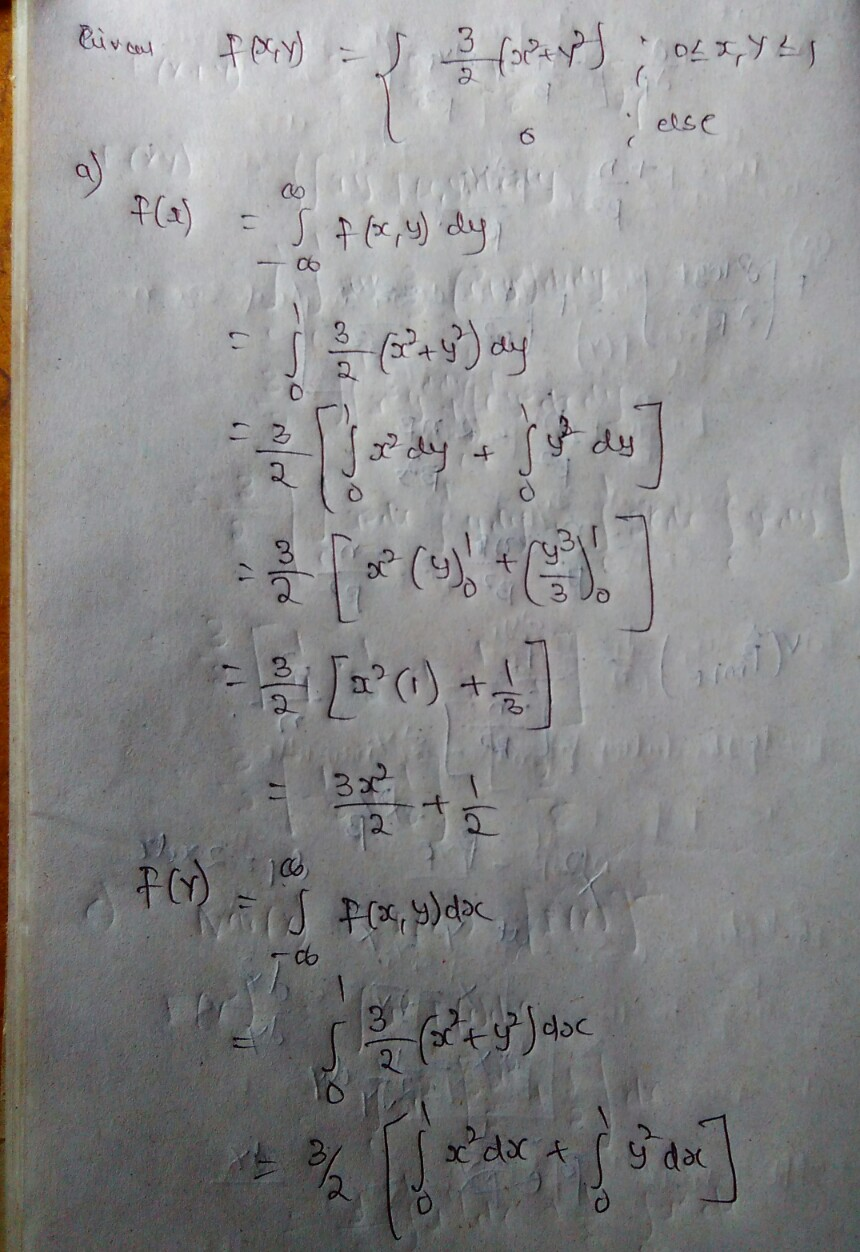 Given f(x,y) = { 3/2 (x²+y²) ; 0≤x,y≤1
0 ; else
a)
f(x) = ∫_{-∞}^{∞} f(x,y) dy
= ∫_0^1 3/2 (x²+y²) dy
= 3/2 [∫_0^1 x² dy + ∫_0^1 y² dy]
= 3/2 [x² (y)_0^1 + (y³/3)_0^1]
= 3/2 [x² (1) + 1/3]
= 3x²/2 + 1/2
f(y) = ∫_{-∞}^{∞} f(x,y) dx
= ∫_0^1 3/2 (x²+y²) dx
= 3/2 [∫_0^1 x² dx + ∫_0^1 y² dx]